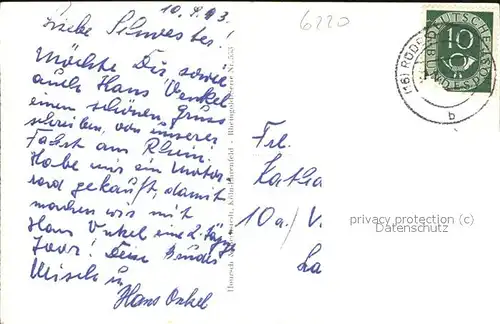 10.8.53.
6220
Liebe Schwester!
Möchte Dir, sowie
auch Hans Onkel
einen schönen Gruss
schreiben, von unserer
Fahrt am Rhein.
Habe mir ein Motor
rad gekauft, damit
machen wir mit
Hans Onkel eine 2 tägige
Tour! Deine Bruder
Misch u
Hans Onkel
Köln-Ehrenfeld - Rheingoldserie Nr. 553
DEUTSCHE BUNDESPOST
10
(16) RÜD
b
Frl.
Katha
10a / V.
La
privacy protection (c)
Datenschutz